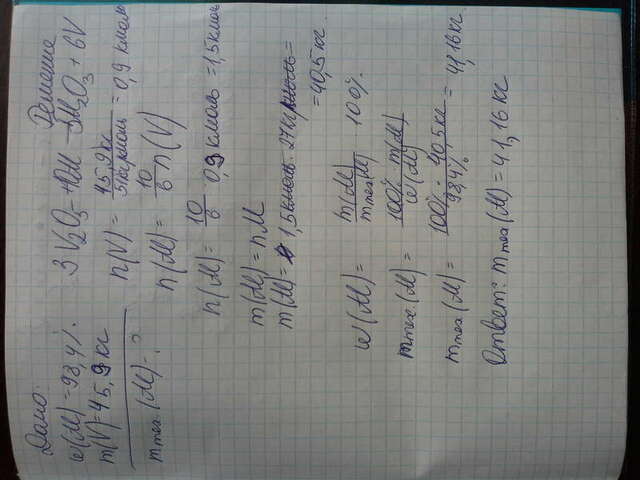 Дано:
w(Al) = 98,4%
m(V) = 45,9 кг
m тех (Al) - ?
Решение
3V2O5 + 10Al → 5Al2O3 + 6V
n(V) = 45,9 кг / 51 кг/кмоль = 0,9 кмоль
n(Al) = 10/6 n(V)
n(Al) = 10/6 0,9 кмоль = 1,5 кмоль
m(Al) = nM
m(Al) = 1,5 кмоль · 27 кг/кмоль =
= 40,5 кг.
w(Al) = m(Al) / m тех (Al) · 100%
m тех. (Al) = 100% · m(Al) / w(Al)
m тех (Al) = 100% · 40,5 кг / 98,4% = 41,16 кг.
Ответ: m тех (Al) = 41,16 кг